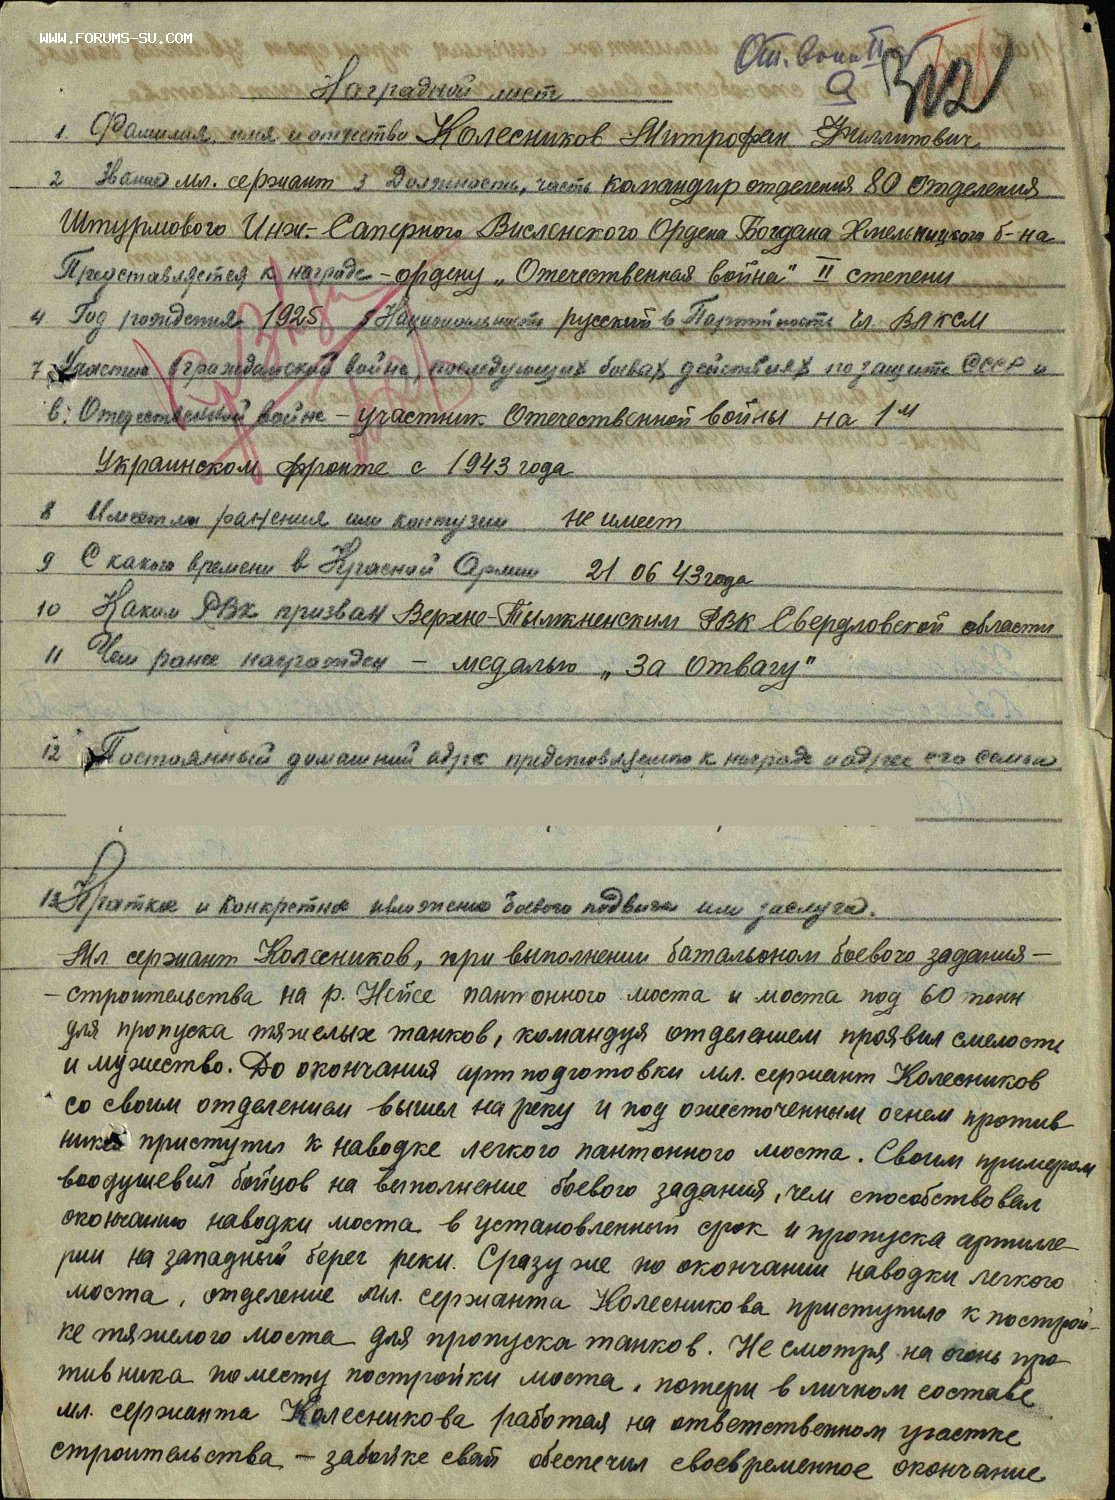 WWW.FORUMS-SU.COM
От. войн II
9
312
Наградной лист
1. Фамилия, имя и отчество Колесников Митрофан Филлипович
2 Звание мл. сержант 3 Должность, часть командир отделения 80 отделения
Штурмового Инж.-Саперного Висленского Ордена Богдана Хмельницкого б-на
Представляется к награде – ордену „Отечественная война" II степени
4 Год рождения 1925 5 Национальность русский 6 Партийность чл. ВЛКСМ
7 Участие в гражданской войне, последующих боевых действиях по защите СССР и
в. Отечественной войне – участник Отечественной войны на 1м
Украинском фронте с 1943 года
8 Имеет ли ранения или контузии не имеет
9 С какого времени в Красной Армии 21 06 43 года
10 Каким РВК призван Верхне-Тылжненским РВК Свердловской области
11 Чем ранее награжден – медалью „За отвагу"
12 Постоянный домашний адрес представляемого к награде и адрес его семьи
13 Краткое и конкретное изложение боевого подвига или заслуга.
Мл сержант Колесников, при выполнении батальоном боевого задания –
– строительства на р. Нейсе пантонного моста и моста под 60 тонн
для пропуска тяжелых танков, командуя отделением проявил смелость
и мужество. До окончания артподготовки мл. сержант Колесников
со своим отделением вышел на реку и под ожесточенным огнем против
ника приступил к наводке легкого пантонного моста. Своим примером
воодушевил бойцов на выполнение боевого задания, чем способствовал
окончанию наводки моста в установленный срок и пропуска артилле
рии на западный берег реки. Сразу же по окончании наводки легкого
моста, отделение мл. сержанта Колесникова приступило к построй-
ке тяжелого моста для пропуска танков. Не смотря на огонь про
тивника по месту постройки моста, потери в личном составе
мл. сержанта Колесникова работая на ответственном участке
строительства – забойке свай обеспечил своевременное окончание